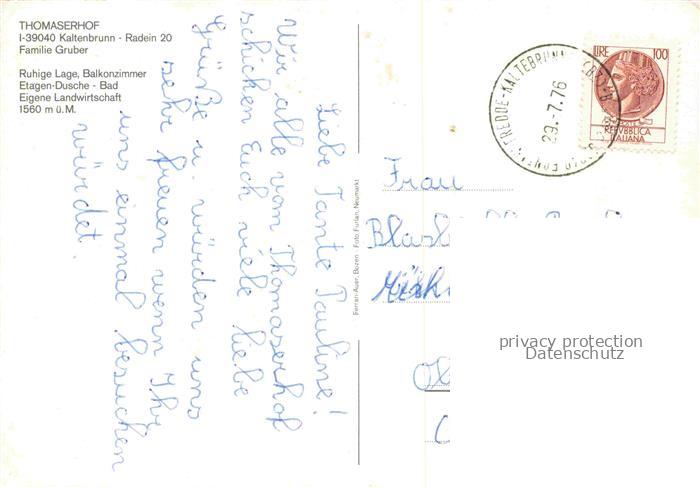 THOMASERHOF
I-39040 Kaltenbrunn - Radein 20
Familie Gruber
Ruhige Lage, Balkonzimmer
Etagen-Dusche - Bad
Eigene Landwirtschaft
1560 m ü.M.
Liebe Tante Pauline!
Wir alle vom Thomaserhof
schicken Euch viele liebe
Grüße u. würden uns
sehr freuen wenn Ihr
uns einmal besuchen
würdet.
Ferrari-Auer, Bozen - Foto Furlan, Neumarkt
29.-7.76
LIRE 100
POSTE
REPVBBLICA
ITALIANA
Frau
privacy protection
Datenschutz